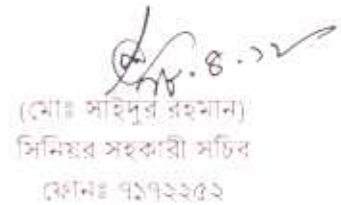 ১৮.৪.১২
(মোঃ সাইদুর রহমান)
সিনিয়র সহকারী সচিব
ফোনঃ ৭১৭২২৫২